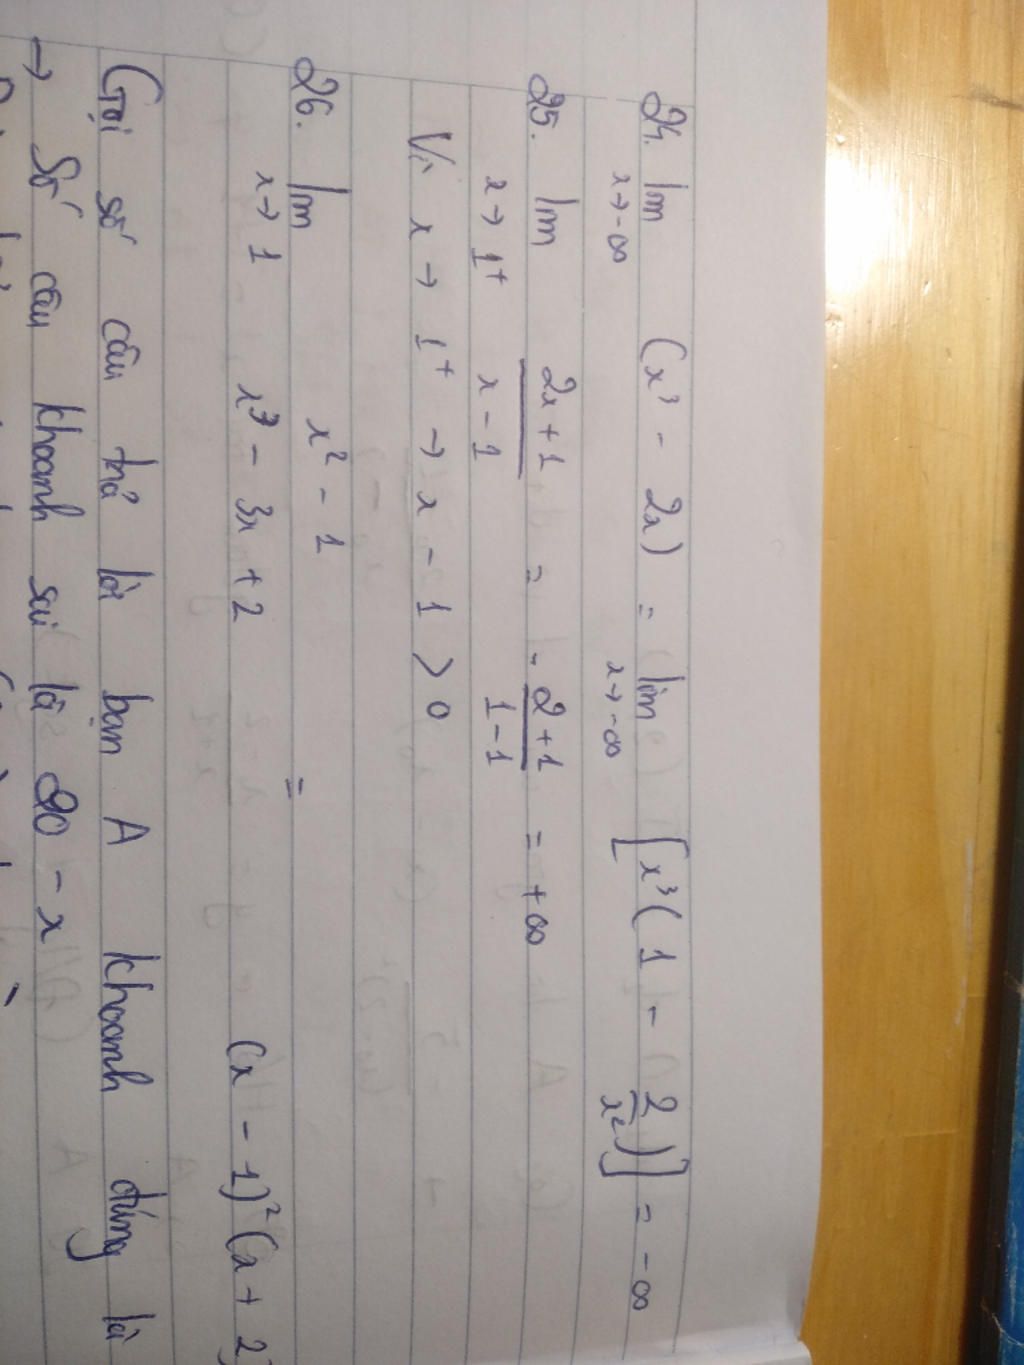 24. lim (x³ - 2x) = lim [x³(1 - 2/x²)] = -∞
x→-∞ x→-∞
25. lim 2x+1 / x-1 = 2+1 / 1-1 = +∞
x→1⁺
Vì x → 1⁺ → x - 1 > 0
26. lim x² - 1 =
x→1 x³ - 3x + 2 (x - 1)²(x + 2)
Gọi số câu trả lời bạn A khoanh đúng là
→ Số câu khoanh sai là 90 - x